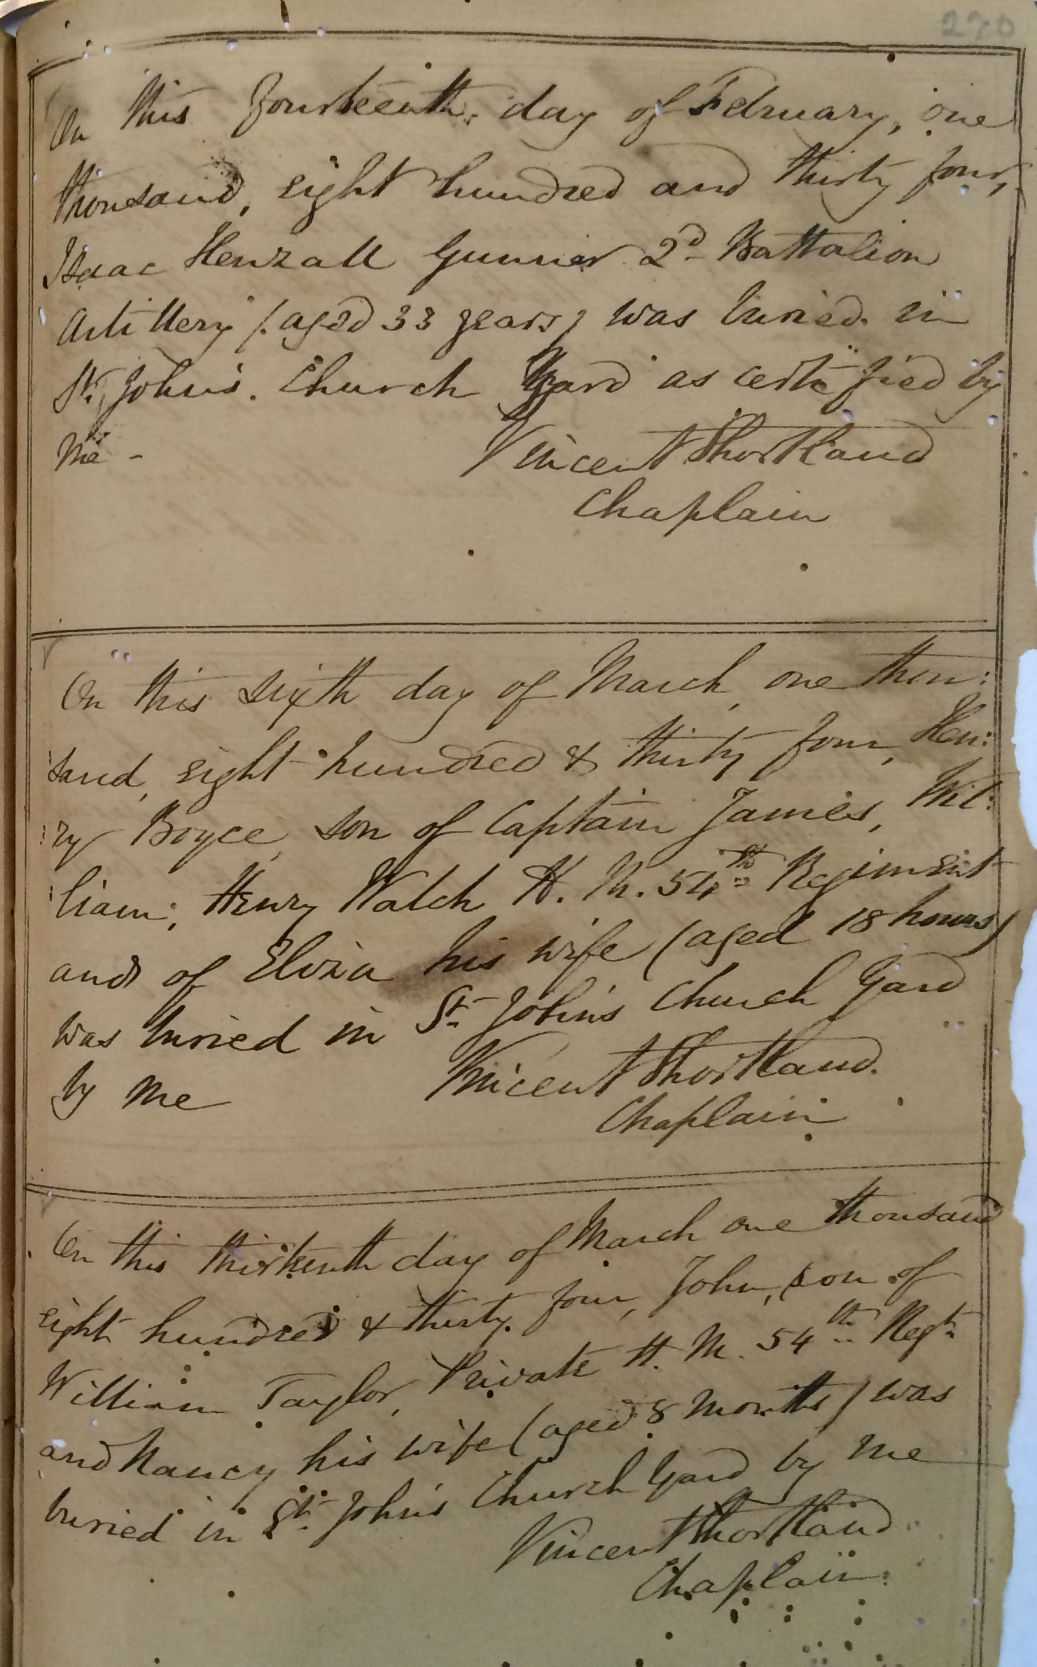 270
On this fourteenth day of February, one
thousand, eight hundred and thirty four,
Isaac Henzall Gunner 2d Battalion
Artillery (aged 33 years) was buried in
St. John's Church Yard as certified by
me -
Vincent Shortland
Chaplain
On this sixth day of March, one thou:
sand, eight hundred & thirty four, Hen:
:ry Boyce, son of Captain James, Wil:
:liam, Henry Walch H. M. 54th Regiment
and of Eliza his wife (aged 18 hours)
was buried in St. John's Church Yard
by me
Vincent Shortland.
Chaplain
On this thirteenth day of March one thousand
eight hundred & thirty four, John, son of
William Taylor, Private H. M. 54th Regt.
and Nancy his wife (aged 8 months) was
buried in St. John's Church Yard by me
Vincent Shortland
Chaplain